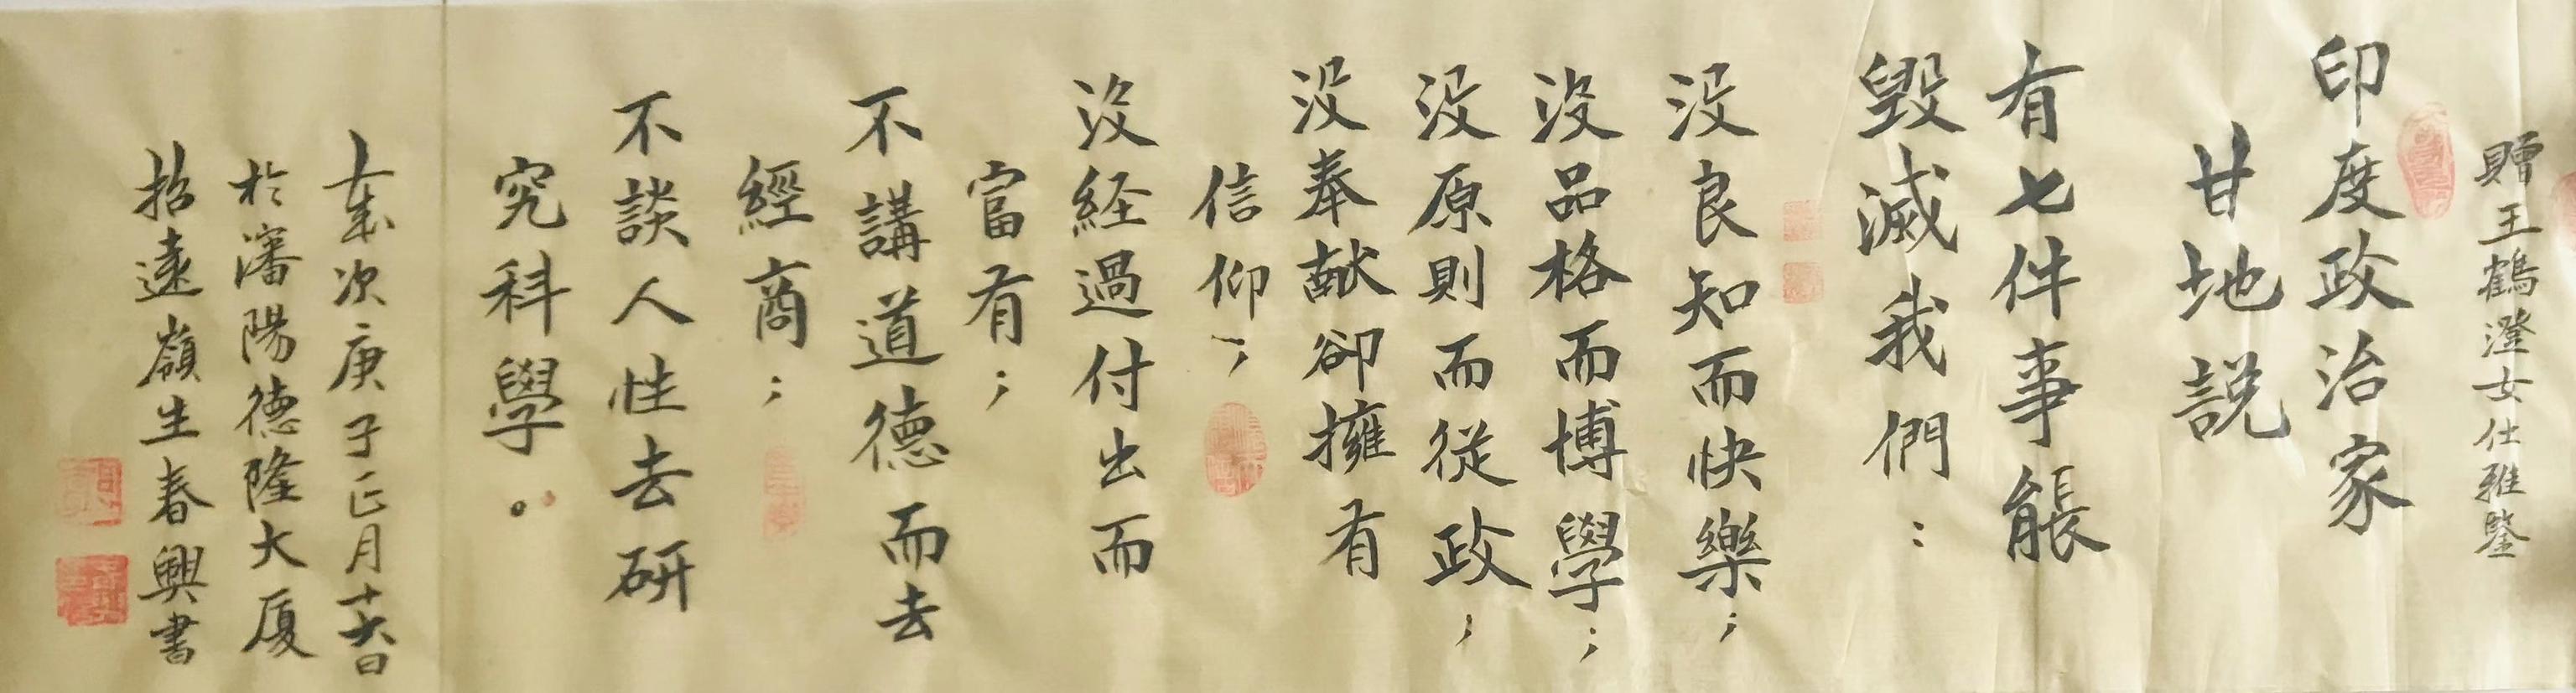 贈王鶴澄女仕雅鑒
印度政治家
甘地説
有七件事能
毀滅我們：
没良知而快樂；
没品格而博學；
没原則而從政；
没奉献卻擁有
信仰；
没経過付出而
富有；
不講道德而去
經商；
不談人性去研
究科學。
歲次庚子正月十六日
於瀋陽德隆大厦
招遠嶺生春興書